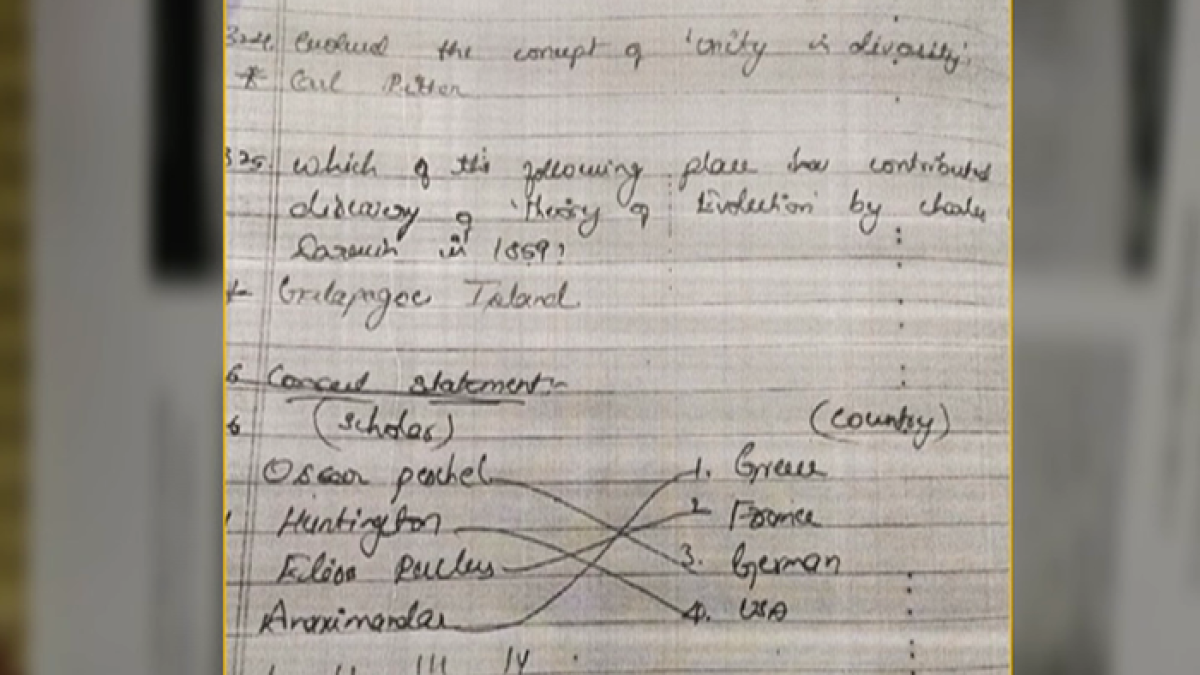 324. evolved the concept of 'unity in diversity'.
* Carl Ritter
325. which of the following place has contributed
discovery of 'Theory of Evolution' by Charles
Darwin in 1859?
Galapagoe Island
6 Correct statement:-
(Scholar) (Country)
Oscar peschel 1. Greece
Huntington 2 France
Elisa Reclus 3. German
Anaximandar 4. USA
III IV